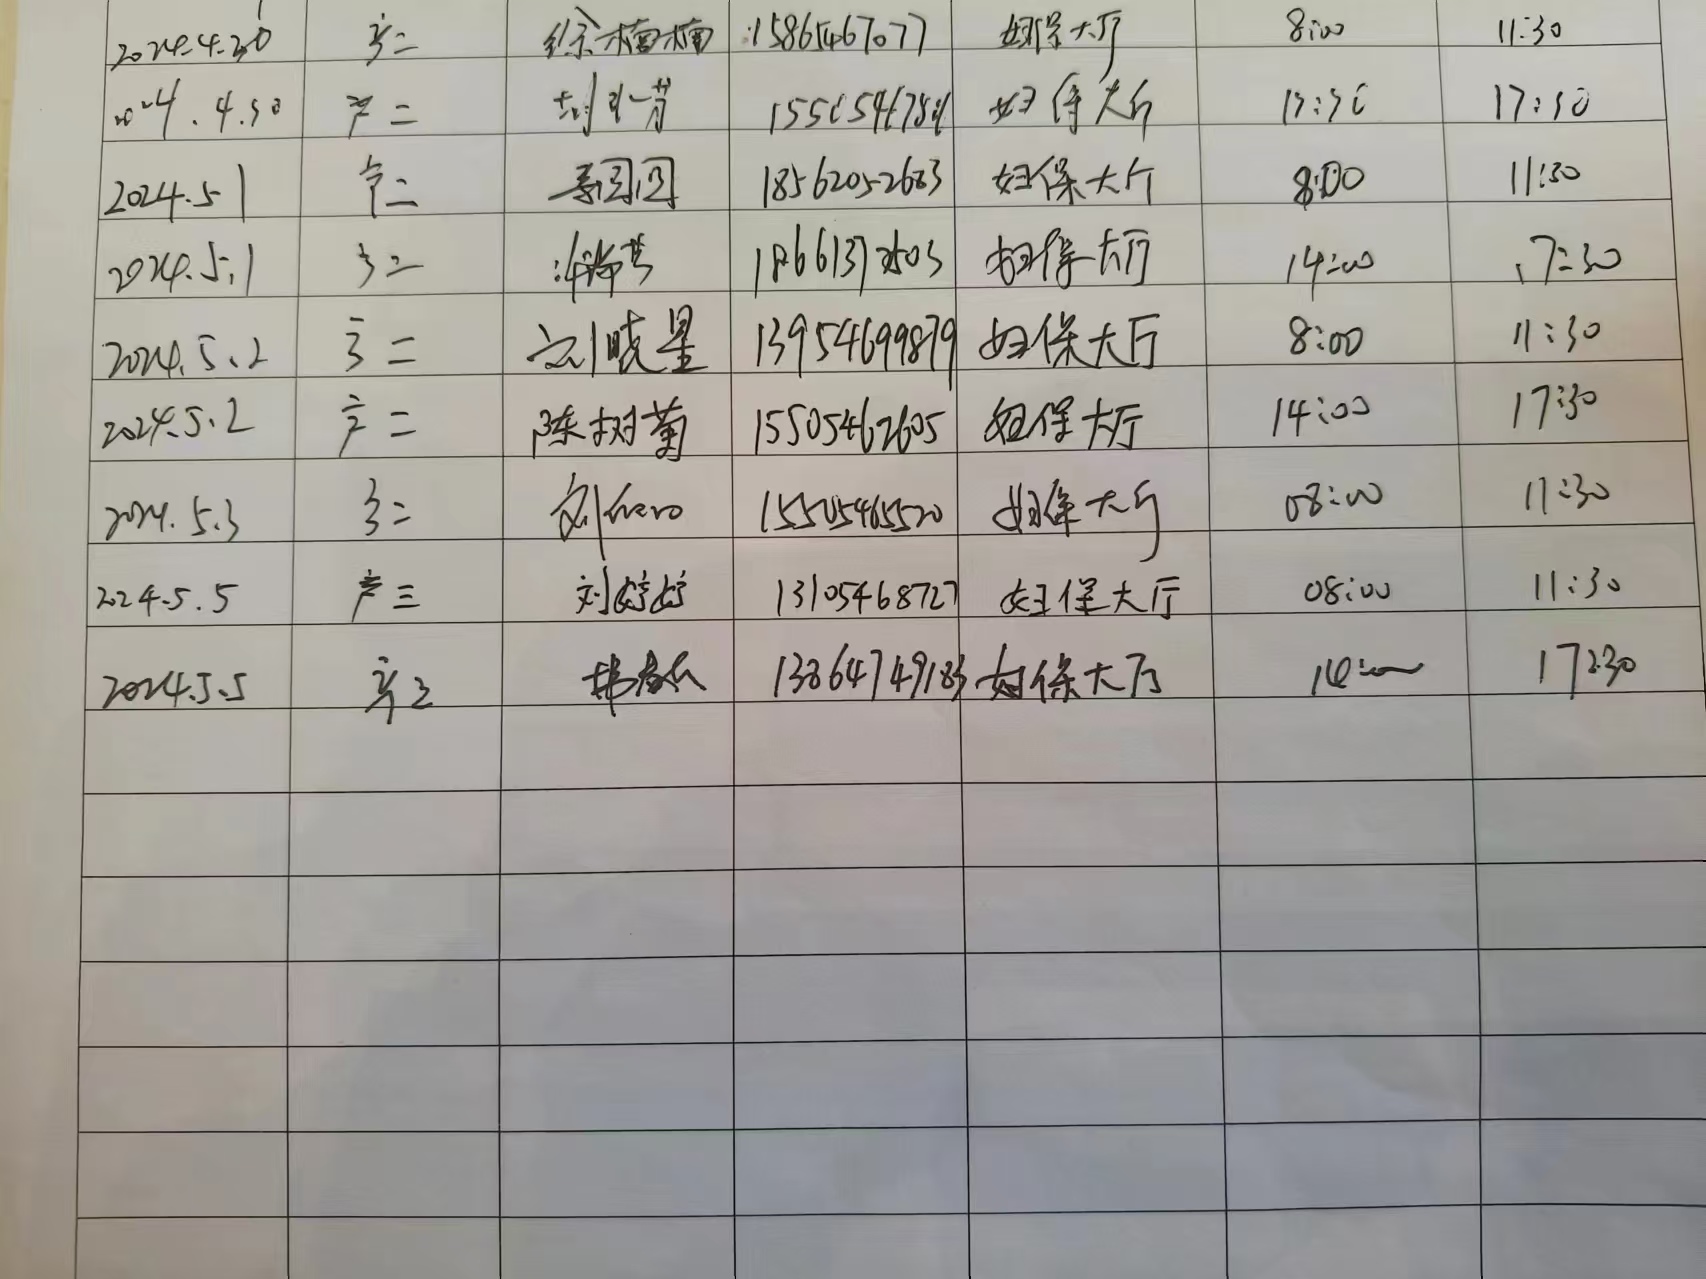 2024.4.30 产二 徐楠楠 15865467077 妇保大厅 8:00 11:30
2024.4.30 产二 妇保大厅 17:30
2024.5.1 产二 18562052683 妇保大厅 8:00 11:30
2024.5.1 产二 妇保大厅 14:00 17:30
2024.5.2 产二 刘晓星 13954699879 妇保大厅 8:00 11:30
2024.5.2 产二 陈树菊 15505462605 妇保大厅 14:00 17:30
2024.5.3 产二 刘 15505465520 妇保大厅 08:00 11:30
2024.5.5 产三 刘婷婷 13105468727 妇保大厅 08:00 11:30
2024.5.5 产二 13864749183 妇保大厅 14:00 17:30